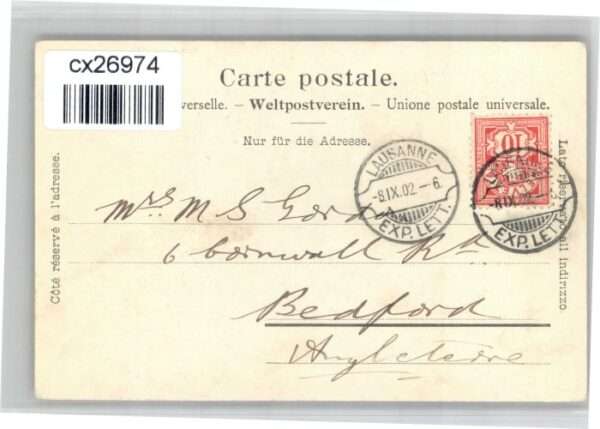 cx26974
Carte postale.
verselle. – Weltpostverein. – Unione postale universale.
Nur für die Adresse.
Côté réservé à l'adresse.
LAUSANNE
-8.IX.02-6.
EXP. LETT.
10
-8.IX.02
EXP. LETT.
Mrs M S
6 Cornwall Rd.
Bedford
Angleterre
Lato
all indirizzo